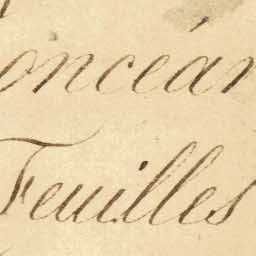 oncéan
Feuilles